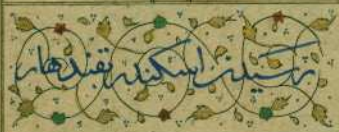 رسیدن اسکندر بقندهار